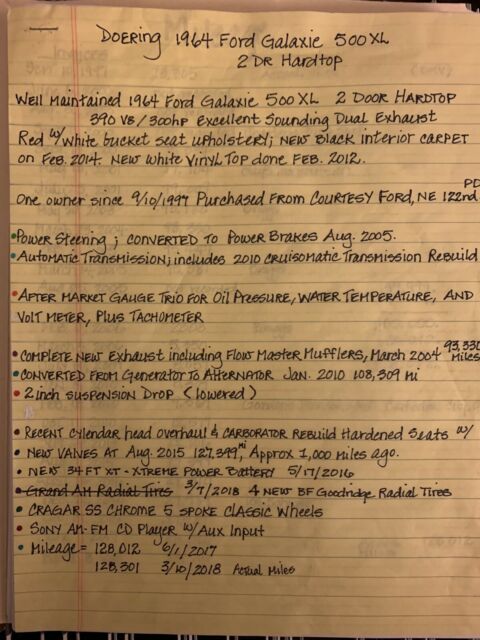 DOERING 1964 FORD GALAXIE 500XL
2 DR HARDTOP
WELL MAINTAINED 1964 FORD GALAXIE 500XL 2 DOOR HARDTOP
390 V8/300hp EXCELLENT SOUNDING DUAL EXHAUST
RED W/WHITE BUCKET SEAT UPHOLSTERY; NEW BLACK INTERIOR CARPET
ON FEB. 2014. NEW WHITE VINYL TOP DONE FEB. 2012.
PD
ONE OWNER SINCE 9/10/1997 PURCHASED FROM COURTESY FORD, NE 122nd
• POWER STEERING; CONVERTED TO POWER BRAKES AUG. 2005.
• AUTOMATIC TRANSMISSION; INCLUDES 2010 CRUISOMATIC TRANSMISSION REBUILD
• AFTER MARKET GAUGE TRIO FOR OIL PRESSURE, WATER TEMPERATURE, AND
VOLT METER, PLUS TACHOMETER
• COMPLETE NEW EXHAUST INCLUDING FLOW MASTER MUFFLERS, MARCH 2004 93,330 MILES
• CONVERTED FROM GENERATOR TO ALTERNATOR JAN. 2010 108,309 mi
• 2 INCH SUSPENSION DROP (LOWERED)
• RECENT CYLENDAR HEAD OVERHAUL & CARBORATOR REBUILD HARDENED SEATS W/
• NEW VALVES AT AUG. 2015 127,399 mi, APPROX 1,000 MILES AGO.
• NEW 34 FT XT - XTREME POWER BATTERY 5/17/2016
• GRAND AM RADIAL TIRES 3/7/2018 4 NEW BF GOODRIDGE RADIAL TIRES
• CRAGAR SS CHROME 5 SPOKE CLASSIC WHEELS
• SONY AM-FM CD PLAYER W/AUX INPUT
• MILEAGE = 128,012 6/1/2017
128,301 3/10/2018 ACTUAL MILES